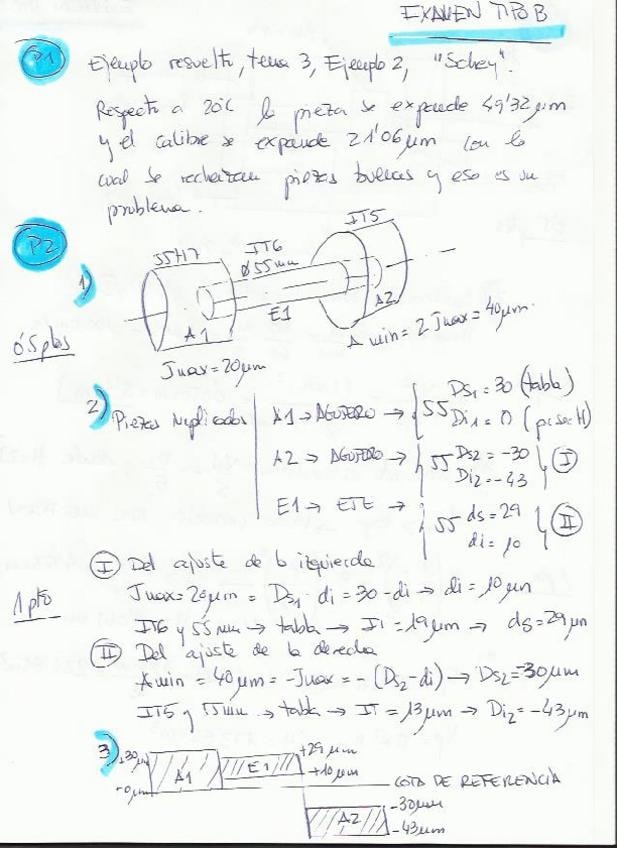 EXAMEN TIPO B
P1
Ejemplo resuelto, tema 3, Ejemplo 2, "Sohey".
Respecto a 20°C la pieza se expande 49'32 μm
y el calibre se expande 21'06 μm con lo
cual se rechazan piezas buenas y eso es un
problema.
P2
1)
0'5 ptos
55H7
IT6
Ø55mm
IT5
A1
E1
A2
Jmax = 20μm
Amin = 2 Jmax = 40μm.
2) Piezas implicadas
A1 → AGUJERO → 55 Ds1 = 30 (tabla)
Di1 = 0 (por ser H)
A2 → AGUJERO → 55 Ds2 = -30
Di2 = -43 I
E1 → EJE → 55 ds = 29
di = 10 II
I Del ajuste de la izquierda
1 pto
Jmax = 20μm = Ds1 - di = 30 - di → di = 10 μm
IT6 y 55mm → tabla → IT = 19μm → ds = 29μm
II Del ajuste de la derecha
Amin = 40μm = -Jmax = -(Ds2 - di) → Ds2 = -30μm
IT5 y 55mm → tabla → IT = 13μm → Di2 = -43μm
3) +30μm
A1
E1
+29 μm
+10μm
-0μm
COTA DE REFERENCIA
A2
-30μm
-43μm